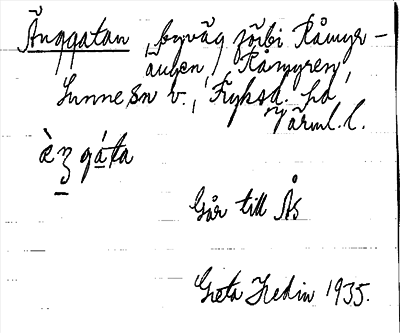 Änggatan byväg förbi Råmyr-
ängen, Råmyren,
Sunne sn v., Fryksd. hd,
Värml. l.
Går till Ås
Greta Hedin 1935.